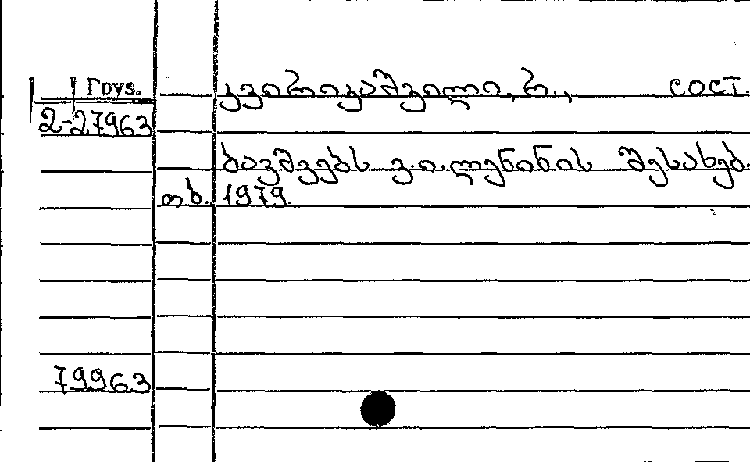 Груз.
კვირიკაშვილი, რ., сост.
2-27963
ბავშვებს ვ.ი.ლენინის შესახებ.
თბ. 1979.
79963